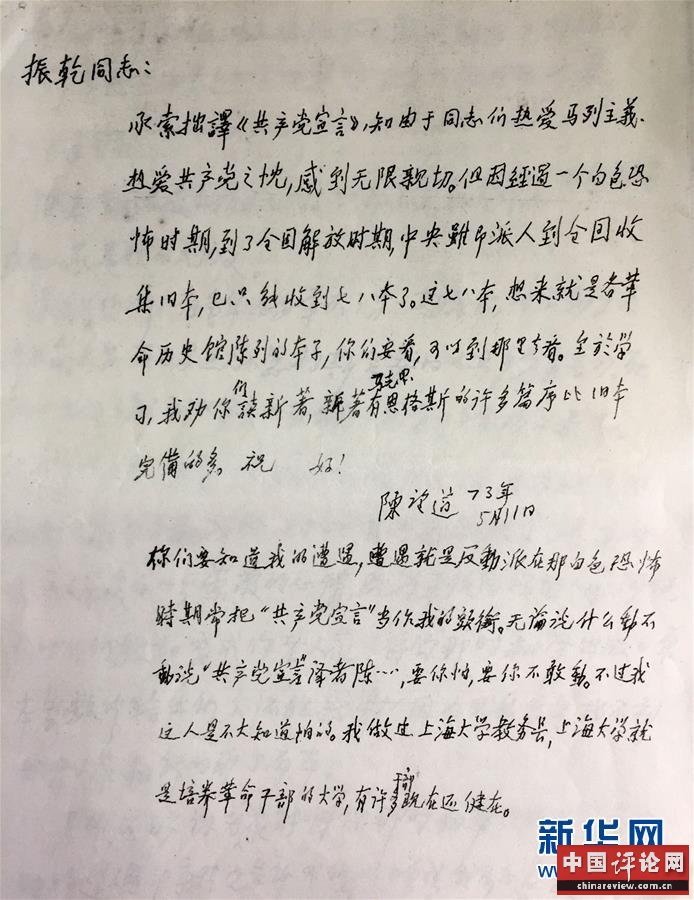 振乾同志：
承索拙譯《共产党宣言》，知由于同志们热爱马列主義、
热爱共产党之忱，感到无限親切。但因經過一个白色恐
怖时期，到了全国解放时期，中央雖帀派人到全国收
集旧本，已只能收到七八本了。这七八本，想来就是各革
命历史馆陈列的本子，你们要看，可以到那里去看。至於学
习，我劝你们讀新著，新著有马克思、恩格斯的许多篇序比旧本
完備的多。祝 好！
陳望道 73年
5月11日
你们要知道我的遭遇，遭遇就是反動派在那白色恐怖
時期常把“共产党宣言”当作我的頭衔。无论说什么動不
動说“共产党宣言”译者陈……，要你怕，要你不敢動。不过我
这人是不大知道怕的。我做过上海大学教务長，上海大学就
是培养革命干部的大学，有许多干部现在还健在。
新华网
中国评论网
chinareview.com.cn